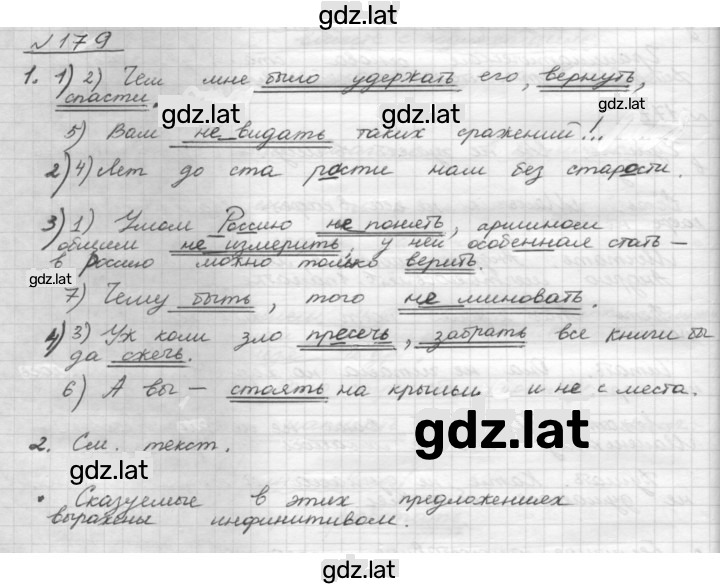 gdz.lat
№179
1. 1) 2) Чем мне было удержать его, вернуть,
спасти.
gdz.lat
gdz.lat
5) Вам не видать таких сражений!..
2) 4) Лет до ста расти нам без старости.
gdz.lat
3) 1) Умом Россию не понять, аршином
общим не измерить, у ней особенная стать –
в Россию можно только верить.
gdz.lat
gdz.lat
7) Чему быть, того не миновать.
4) 3) Уж коли зло пресечь, забрать все книги бы
да сжечь.
6) А вы – стоять на крыльце и не с места.
gdz.lat
2. См. текст.
gdz.lat
• Сказуемые в этих предложениях
gdz.lat
выражены инфинитивом.
gdz.lat